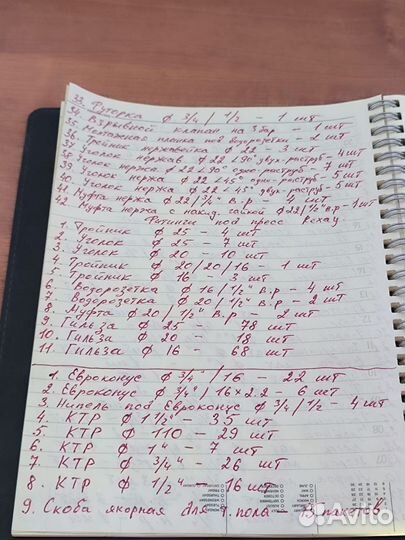 33. Футорка ф 3/4 / 1/2 - 1 шт
34. Взрывной клапан на 3 бар - 1 шт
35. Монтажная планка под водорозетки - 2 шт
36. Тройник нержавейка ф 22 - 3 шт
37. Уголок нержав ф 22 L 90° двух-раструб - 4 шт
38. Уголок нержа ф 22 L 90° одно-раструб - 7 шт
39. Уголок нержа ф 22 L 45° одно-раструб - 6 шт
40. Уголок нержа ф 22 L 45° двух-раструб - 5 шт
41. Муфта нержа ф 22/3/4" в.р - 4 шт
42. Муфта нержа с накид. гайкой ф 22/3/4" в.р - 1 шт
Фитинги под пресс Рехау.
1. Тройник ф 25 - 4 шт
2. Уголок ф 25 - 7 шт
3. Уголок ф 20 - 10 шт
4. Тройник ф 20/20/16 - 1 шт
5. Тройник ф 16 - 3 шт
6. Водорозетка ф 16/1/2" в.р - 4 шт
7. Водорозетка ф 20/1/2" в.р - 2 шт
8. Муфта ф 20/1/2" в.р - 2 шт
9. Гильза ф 25 - 78 шт
10. Гильза ф 20 - 18 шт
11. Гильза ф 16 - 68 шт
1. Евроконус ф 3/4"/16 - 22 шт
2. Евроконус ф 3/4"/16×2.2 - 6 шт
3. Нипель под Евроконус ф 3/4/1/2 - 4 шт
4. КТР ф 1 1/2" - 35 шт
5. КТР ф 110 - 29 шт
6. КТР ф 1" - 7 шт
7. КТР ф 3/4" - 26 шт
8. КТР ф 1/2" - 16 шт
9. Скоба якорная для т пола - пакетов
Avito